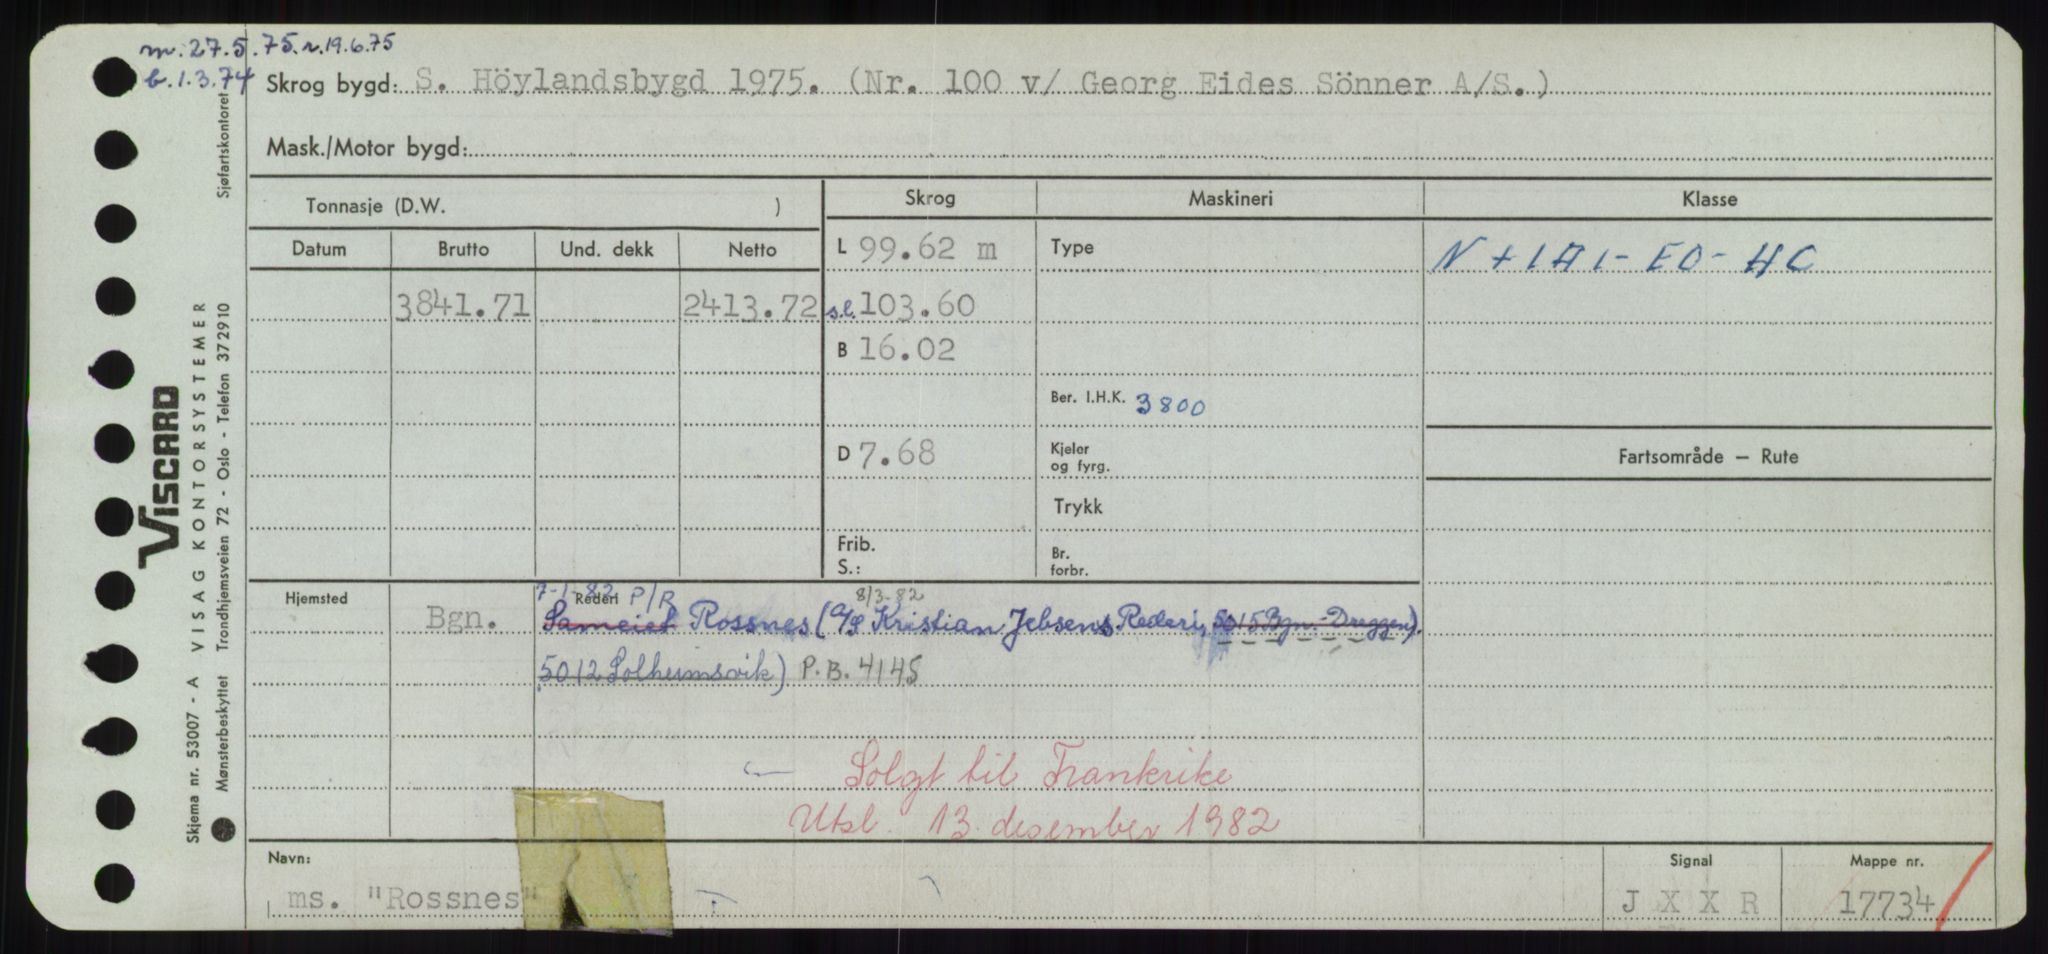 m. 27.5.75. r. 19.6.75
b. 1.3.74
Skrog bygd: S. Höylandsbygd 1975. (Nr. 100 v/ Georg Eides Sönner A/S.)
Mask./Motor bygd:
Tonnasje (D.W. )
Skrog
Maskineri
Klasse
Datum
Brutto
Und. dekk
Netto
L 99.62 m
Type
N + 1A1 - EO - HC
3841.71
2413.72
s.l. 103.60
B 16.02
Ber. I.H.K. 3800
D 7.68
Kjeler
og fyrg.
Fartsområde — Rute
Trykk
Frib.
S.:
Br.
forbr.
Hjemsted
Bgn.
7-1-82 P/R
8/3-82
Rederi
Sameiet Rossnes (A/S Kristian Jebsens Rederi, 5015 Bgn.-Dreggen).
5012 Solheimsvik) P.B. 4145
Solgt til Frankrike
Utsl. 13. desember 1982
Navn:
ms. "Rossnes"
Signal
J X X R
Mappe nr.
17734
Sjøfartskontoret
VISCARD
Skjema nr. 53007 - A VISAG KONTORSYSTEMER
Mønsterbeskyttet Trondhjemsveien 72 - Oslo - Telefon 372910